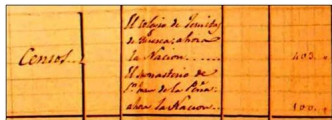 El Colegio de Jesuitas
de Huesca; ahora
Censos.. la Nacion...... 403..
El Monasterio de
Sn. Juan de la Peña
ahora la Nacion... 100..